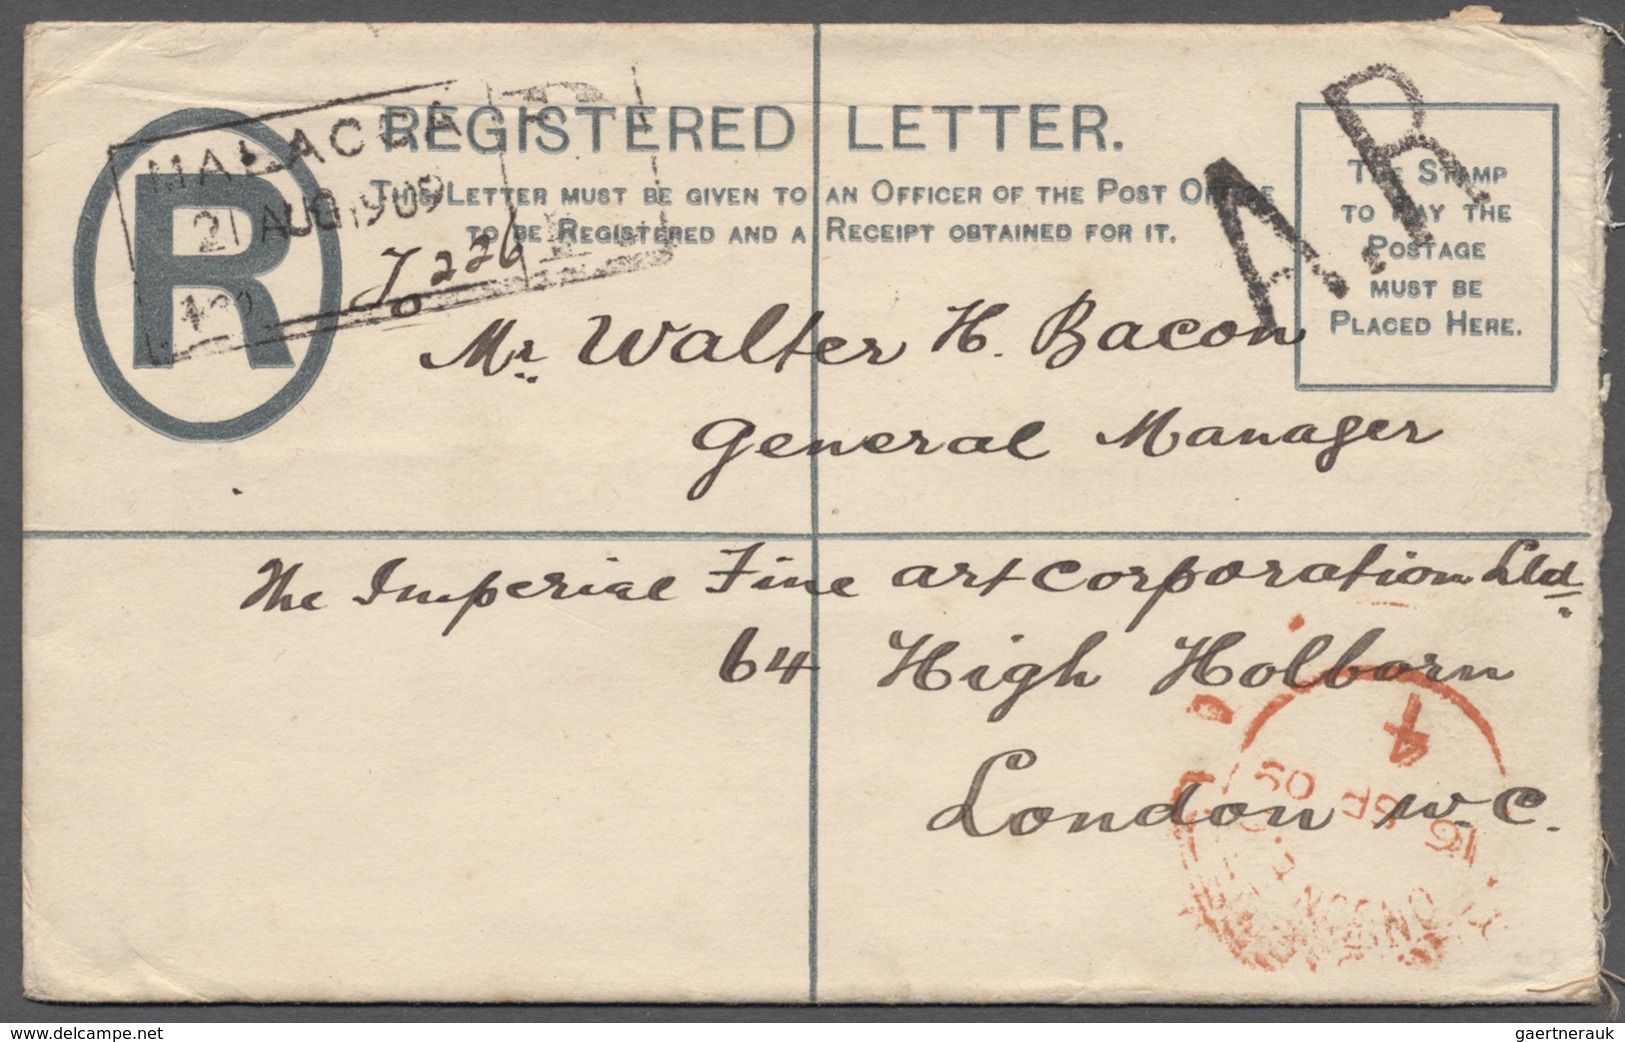 REGISTERED LETTER.
THIS LETTER MUST BE GIVEN TO AN OFFICER OF THE POST OFFICE
TO BE REGISTERED AND A RECEIPT OBTAINED FOR IT.
R
MALACCA
21 AUG 1909
226
A.R.
THE STAMP
TO PAY THE
POSTAGE
MUST BE
PLACED HERE.
Mr. Walter H. Bacon
General Manager
The Imperial Fine art Corporation Ltd.
64 High Holborn
London W.C.
4
16 SE 09
www.delcampe.net
gaertnerauk